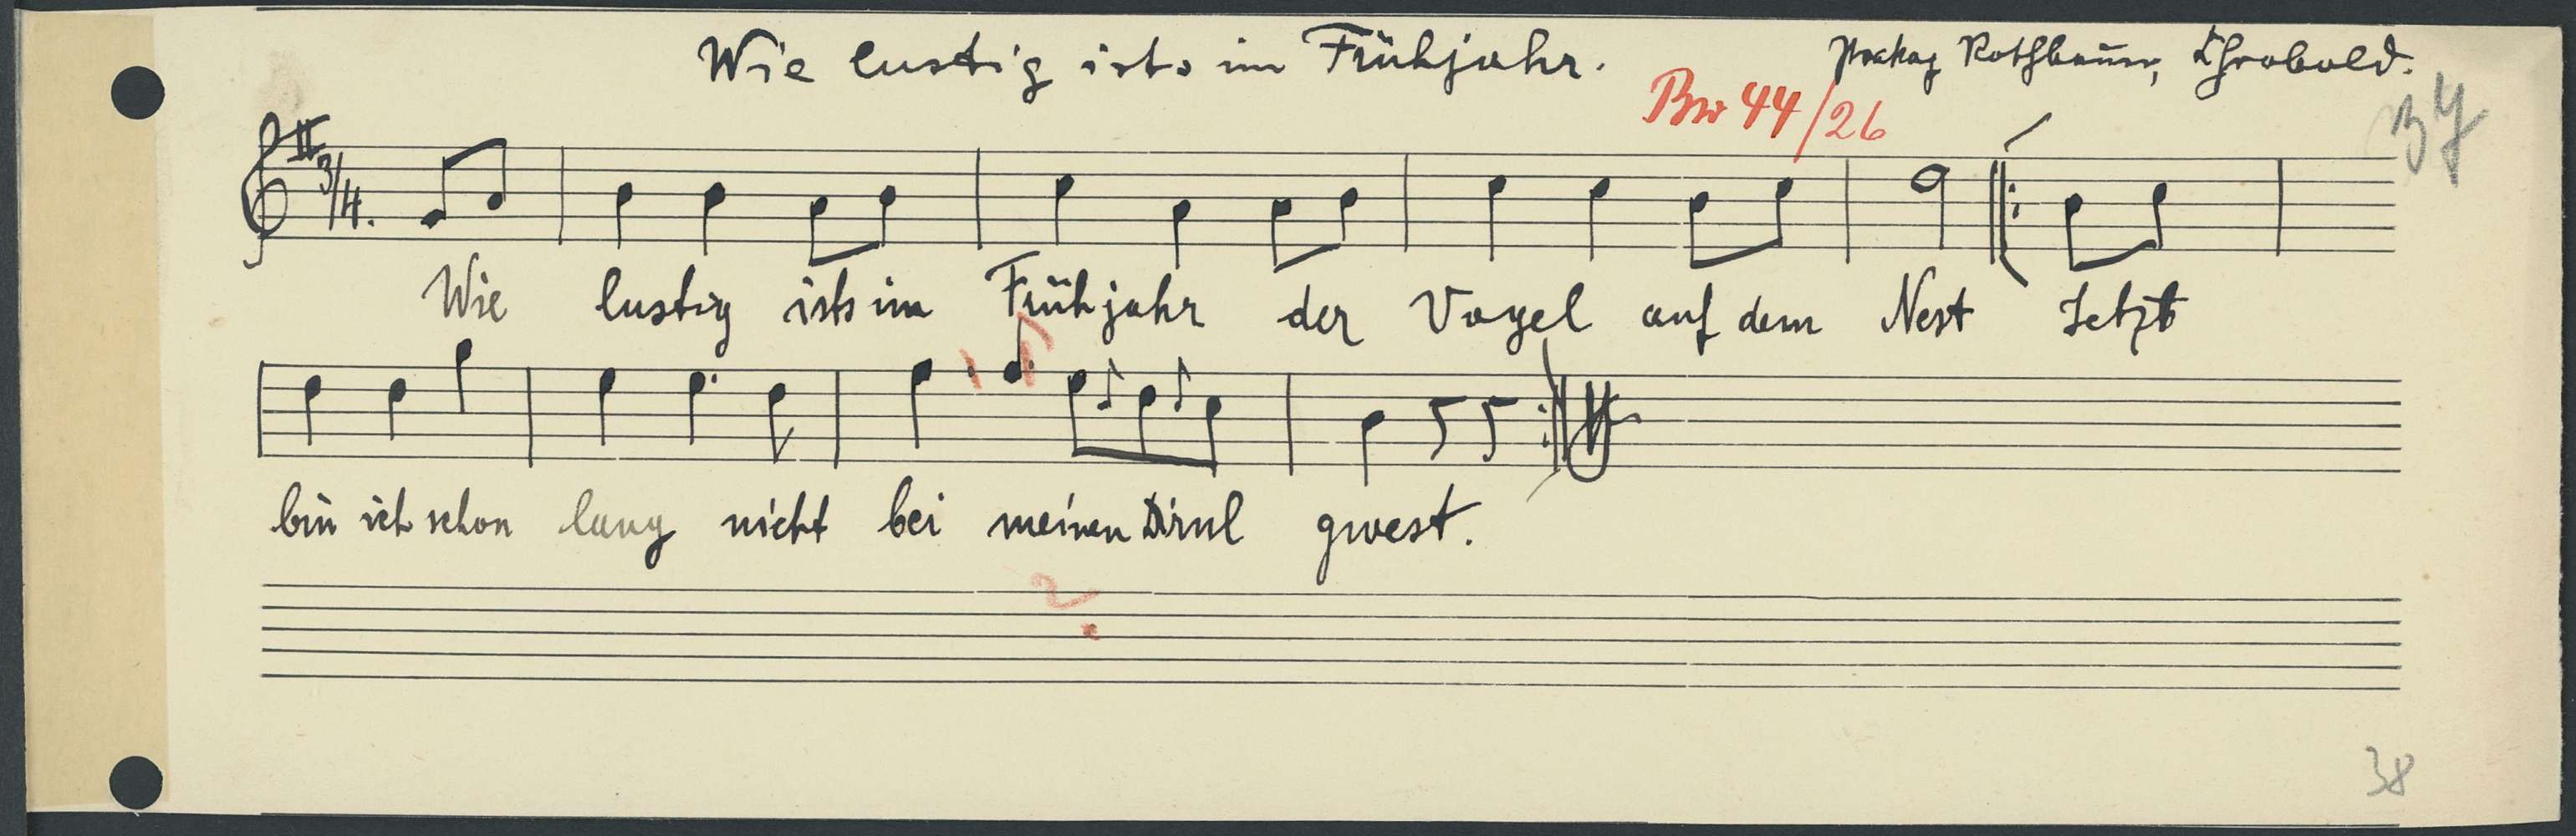 Wie lustig ists im Frühjahr.
Rothbauer, Chrobold.
Bw 44/26
3/4.
Wie lustig ists im Frühjahr der Vogel auf dem Nest Jetzt
bin ich schon lang nicht bei meinen Dirnl gwest.
?
38